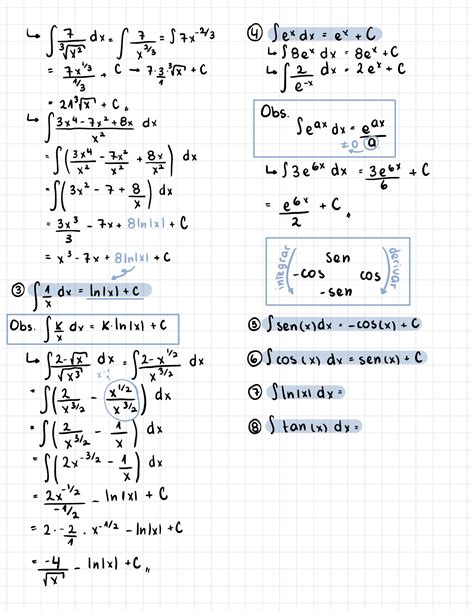 ↳ ∫ 7/∛x² dx = ∫ 7/x^(2/3) = ∫ 7x^(-2/3)
= 7x^(1/3)/(1/3) + C → 7·3/1 ∛x + C
= 21∛x + C //
↳ ∫ (3x⁴ - 7x² + 8x)/x² dx
= ∫ (3x⁴/x² - 7x²/x² + 8x/x²) dx
= ∫ (3x² - 7 + 8/x) dx
= 3x³/3 - 7x + 8ln|x| + C
= x³ - 7x + 8ln|x| + C
③ ∫ 1/x dx = ln|x| + C
Obs. ∫ K/x dx = K·ln|x| + C
↳ ∫ (2-√x)/√x³ dx = ∫ (2 - x^(1/2))/x^(3/2) dx
= ∫ (2/x^(3/2) - x^(1/2)/x^(3/2)) dx
= ∫ (2/x^(3/2) - 1/x) dx
= ∫ (2x^(-3/2) - 1/x) dx
= 2x^(-1/2)/(-1/2) - ln|x| + C
= 2·-2/1 · x^(-1/2) - ln|x| + C
= -4/√x - ln|x| + C //
④ ∫ eˣ dx = eˣ + C
↳ ∫ 8eˣ dx = 8eˣ + C
↳ ∫ 2/e^(-x) dx = 2eˣ + C
Obs.
∫ e^(ax) dx = e^(ax)/a
≠0
↳ ∫ 3e^(6x) dx = 3e^(6x)/6 + C
= e^(6x)/2 + C //
integrar
sen
-cos cos
-sen
derivar
⑤ ∫ sen(x)dx = -cos(x) + C
⑥ ∫ cos(x) dx = sen(x) + C
⑦ ∫ ln|x| dx =
⑧ ∫ tan(x) dx =